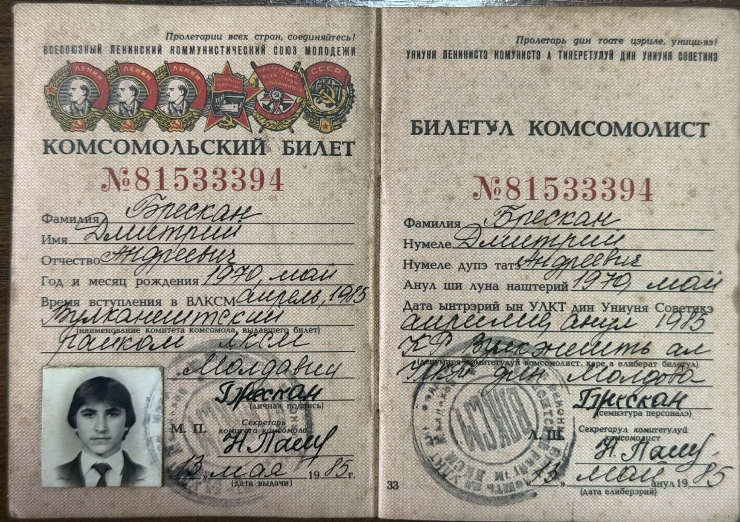 Пролетарии всех стран, соединяйтесь!
ВСЕСОЮЗНЫЙ ЛЕНИНСКИЙ КОММУНИСТИЧЕСКИЙ СОЮЗ МОЛОДЕЖИ
ЛЕНИН ЛЕНИН ЛЕНИН СССР
КОМСОМОЛЬСКИЙ БИЛЕТ
№81533394
Фамилия Брескан
Имя Дмитрий
Отчество Андреевич
Год и месяц рождения 1970, май
Время вступления в ВЛКСМ апрель, 1985
Вулканештский
(наименование комитета комсомола, выдавшего билет)
райком ЛКСМ
Молдавии
Брескан
(личная подпись)
М. П. Секретарь
комитета комсомола
13 „ мая 1985 г.
(дата выдачи)
Пролетарь дин тоате цэриле, уници-вэ!
УНИУНЯ ЛЕНИНИСТЭ КОМУНИСТЭ А ТИНЕРЕТУЛУЙ ДИН УНИУНЯ СОВЕТИКЭ
БИЛЕТУЛ КОМСОМОЛИСТ
№81533394
Фамилия Брескан
Нумеле Дмитрий
Нумеле дупэ татэ Андреевич
Анул ши луна наштерий 1970, май
Дата ынтрэрий ын УЛКТ дин Униуня Советикэ
априлие анул 1985
КР ал
(денумиря комитетулуй комсомолист, каре а елиберат билетул)
дин Молдова
Брескан
(семнэтура персоналэ)
Л. Ш. Секретарул комитетулуй
комсомолист
„13„ май анул 1985
(дата елиберэрий)
33